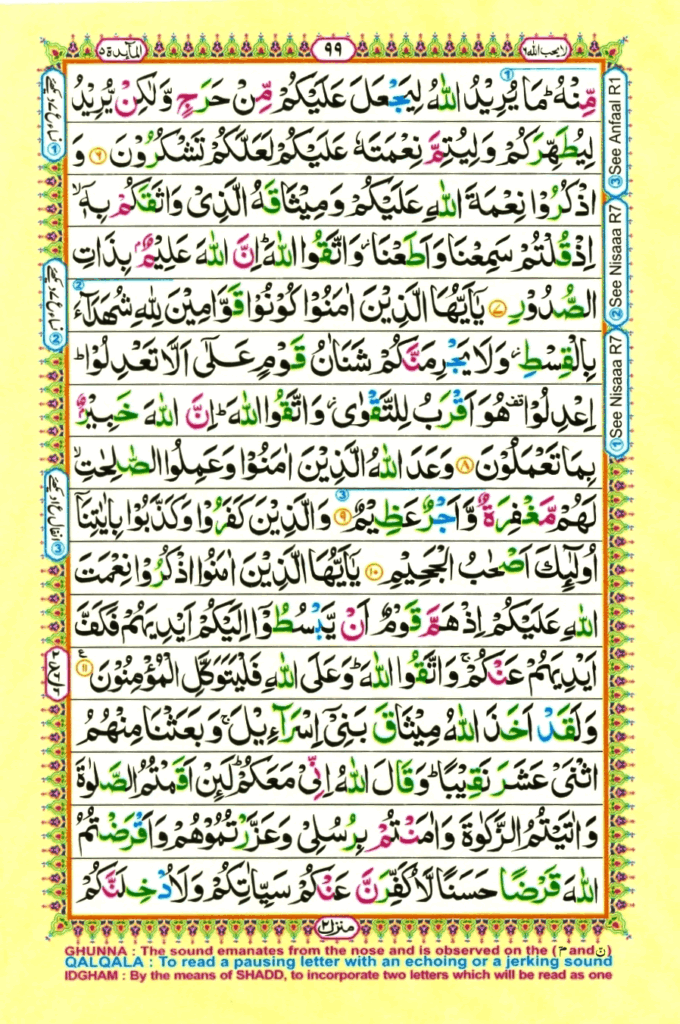 المآئدة ۵
۹۹
لا يحب الله ۶
مِّنْهُ ؕ مَا يُرِيْدُ اللّٰهُ لِيَجْعَلَ عَلَيْكُمْ مِّنْ حَرَجٍ وَّلٰكِنْ يُّرِيْدُ
لِيُطَهِّرَكُمْ وَلِيُتِمَّ نِعْمَتَهٗ عَلَيْكُمْ لَعَلَّكُمْ تَشْكُرُوْنَ ۶ وَ
اذْكُرُوْا نِعْمَةَ اللّٰهِ عَلَيْكُمْ وَمِيْثَاقَهُ الَّذِىْ وَاثَقَكُمْ بِهٖۤ ۙ
اِذْ قُلْتُمْ سَمِعْنَا وَاَطَعْنَا ؗ وَاتَّقُوا اللّٰهَ ؕ اِنَّ اللّٰهَ عَلِيْمٌۢ بِذَاتِ
الصُّدُوْرِ ۷ يٰۤاَيُّهَا الَّذِيْنَ اٰمَنُوْا كُوْنُوْا قَوَّامِيْنَ لِلّٰهِ شُهَدَآءَ
بِالْقِسْطِ ؗ وَلَا يَجْرِمَنَّكُمْ شَنَاٰنُ قَوْمٍ عَلٰٓى اَلَّا تَعْدِلُوْا ؕ
اِعْدِلُوْا ࣞ هُوَ اَقْرَبُ لِلتَّقْوٰى ؗ وَاتَّقُوا اللّٰهَ ؕ اِنَّ اللّٰهَ خَبِيْرٌۢ
بِمَا تَعْمَلُوْنَ ۸ وَعَدَ اللّٰهُ الَّذِيْنَ اٰمَنُوْا وَعَمِلُوا الصّٰلِحٰتِ ۙ
لَهُمْ مَّغْفِرَةٌ وَّاَجْرٌ عَظِيْمٌ ۹ وَالَّذِيْنَ كَفَرُوْا وَكَذَّبُوْا بِاٰيٰتِنَاۤ
اُولٰٓئِكَ اَصْحٰبُ الْجَحِيْمِ ۱۰ يٰۤاَيُّهَا الَّذِيْنَ اٰمَنُوا اذْكُرُوْا نِعْمَتَ
اللّٰهِ عَلَيْكُمْ اِذْ هَمَّ قَوْمٌ اَنْ يَّبْسُطُوْۤا اِلَيْكُمْ اَيْدِيَهُمْ فَكَفَّ
اَيْدِيَهُمْ عَنْكُمْ ۚ وَاتَّقُوا اللّٰهَ ؕ وَعَلَى اللّٰهِ فَلْيَتَوَكَّلِ الْمُؤْمِنُوْنَ ۱۱
وَلَقَدْ اَخَذَ اللّٰهُ مِيْثَاقَ بَنِىْۤ اِسْرَآءِيْلَ ۚ وَبَعَثْنَا مِنْهُمُ
اثْنَىْ عَشَرَ نَقِيْبًا ؕ وَقَالَ اللّٰهُ اِنِّىْ مَعَكُمْ ؕ لَئِنْ اَقَمْتُمُ الصَّلٰوةَ
وَاٰتَيْتُمُ الزَّكٰوةَ وَاٰمَنْتُمْ بِرُسُلِىْ وَعَزَّرْتُمُوْهُمْ وَاَقْرَضْتُمُ
اللّٰهَ قَرْضًا حَسَنًا لَّاُكَفِّرَنَّ عَنْكُمْ سَيِّاٰتِكُمْ وَلَاُدْخِلَنَّكُمْ
③ See Anfaal R1
② See Nisaaa R7
① See Nisaaa R7
منزل ۲
GHUNNA : The sound emanates from the nose and is observed on the (م and ن)
QALQALA : To read a pausing letter with an echoing or a jerking sound
IDGHAM : By the means of SHADD, to incorporate two letters which will be read as one